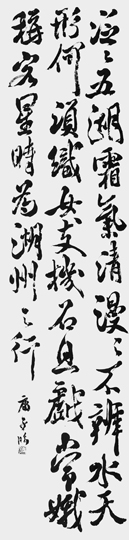 泛〻五湖霜氣清漫〻不辨水天
形何須織女支機石且戲常娥
稱客星時為湖州之行